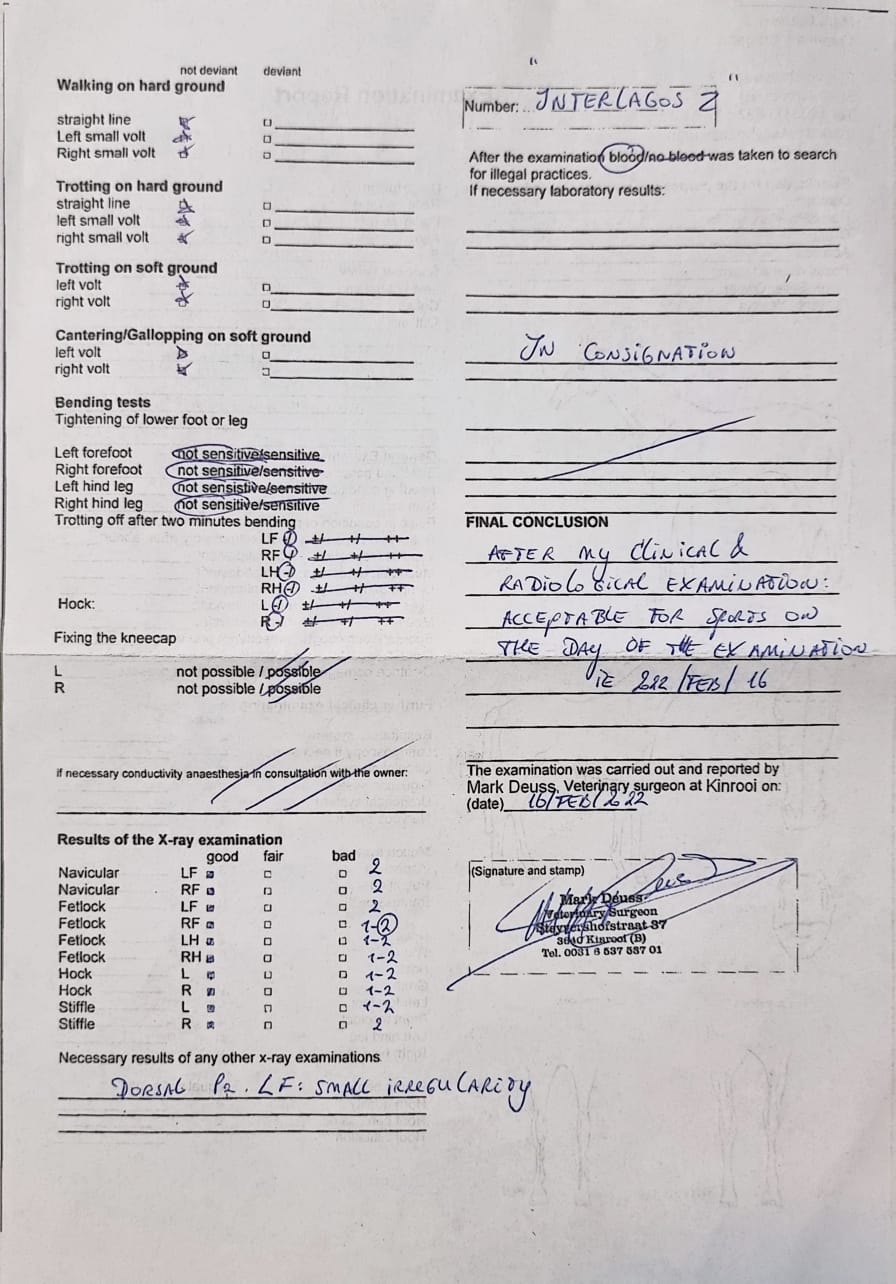 not deviant deviant
Walking on hard ground
straight line
Left small volt
Right small volt
Trotting on hard ground
straight line
left small volt
right small volt
Trotting on soft ground
left volt
right volt
Cantering/Gallopping on soft ground
left volt
right volt
Bending tests
Tightening of lower foot or leg
Left forefoot not sensitive/sensitive
Right forefoot not sensitive/sensitive
Left hind leg not sensistive/sensitive
Right hind leg not sensitive/sensitive
Trotting off after two minutes bending
LF - +/- +/ ++
RF - +/- +/ ++
LH - +/- +/ ++
RH - +/- +/ ++
Hock: L - +/- +/ ++
R - +/- +/ ++
Fixing the kneecap
L not possible / possible
R not possible / possible
If necessary conductivity anaesthesia in consultation with the owner:
Results of the X-ray examination
good fair bad
Navicular LF 2
Navicular RF 2
Fetlock LF 2
Fetlock RF 1-2
Fetlock LH 1-2
Fetlock RH 1-2
Hock L 1-2
Hock R 1-2
Stiffle L 1-2
Stiffle R 2
Necessary results of any other x-ray examinations
DORSAL P2. LF: SMALL IRREGULARITY
Number: "INTERLAGOS Z"
After the examination blood/no blood was taken to search
for illegal practices.
If necessary laboratory results:
IN CONSIGNATION
FINAL CONCLUSION
AFTER MY CLINICAL &
RADIOLOGICAL EXAMINATION:
ACCEPTABLE FOR SPORTS ON
THE DAY OF THE EXAMINATION
IE 2022/FEB/16
The examination was carried out and reported by
Mark Deuss, Veterinary surgeon at Kinrooi on:
(date) 16/FEB/2022
(Signature and stamp)
Mark Deuss
Veterinary Surgeon
37
3640 Kinrooi (B)
Tel. 0031 6 537 537 01